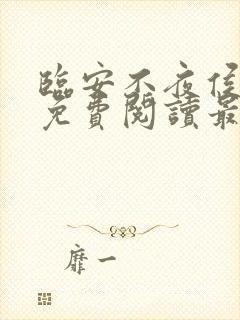 臨安不夜侯
免費閱讀最
靡一